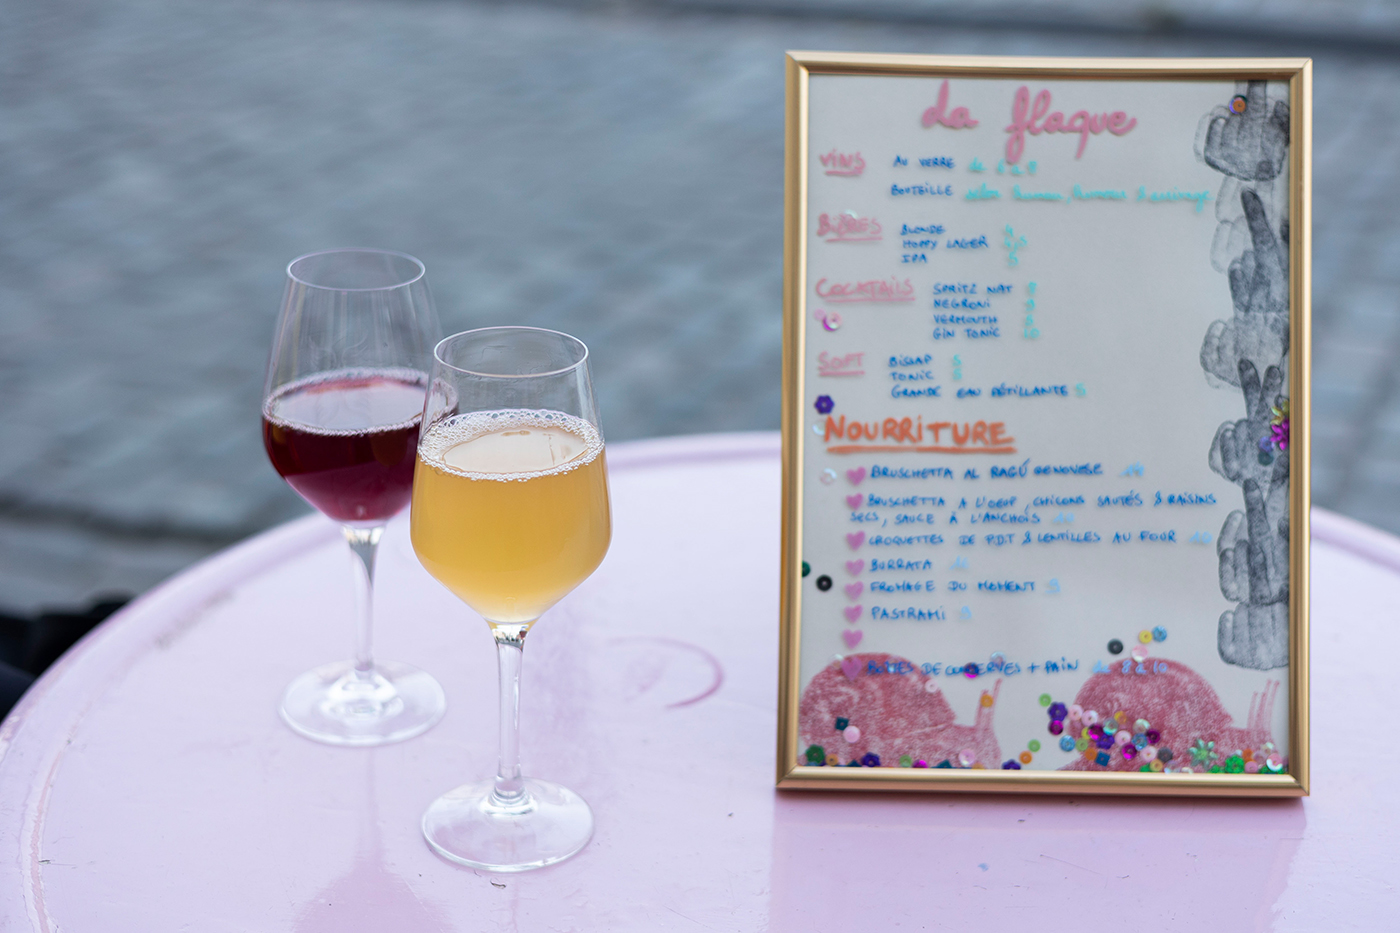 La flaque
VINS AU VERRE de 6 à 8
BOUTEILLE selon humeur, humeurs & arrivage
BIÈRES BLONDE
HOPPY LAGER
IPA
COCKTAILS SPRITZ NAT
NEGRONI
VERMOUTH
GIN TONIC 10
SOFT BISSAP
TONIC
GRANDE EAU PÉTILLANTE 5
NOURRITURE
BRUSCHETTA AL RAGÚ GENOVESE
BRUSCHETTA A L'OEUF, CHICONS SAUTÉS & RAISINS
SECS, SAUCE À L'ANCHOIS
CROQUETTES DE P.D.T & LENTILLES AU FOUR
BURRATA
FROMAGE DU MOMENT 9
PASTRAMI 9
BOITES DE CONSERVES + PAIN de 8 à 10